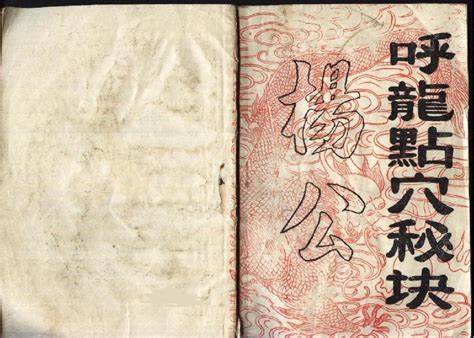 呼龍點穴秘块
楊公